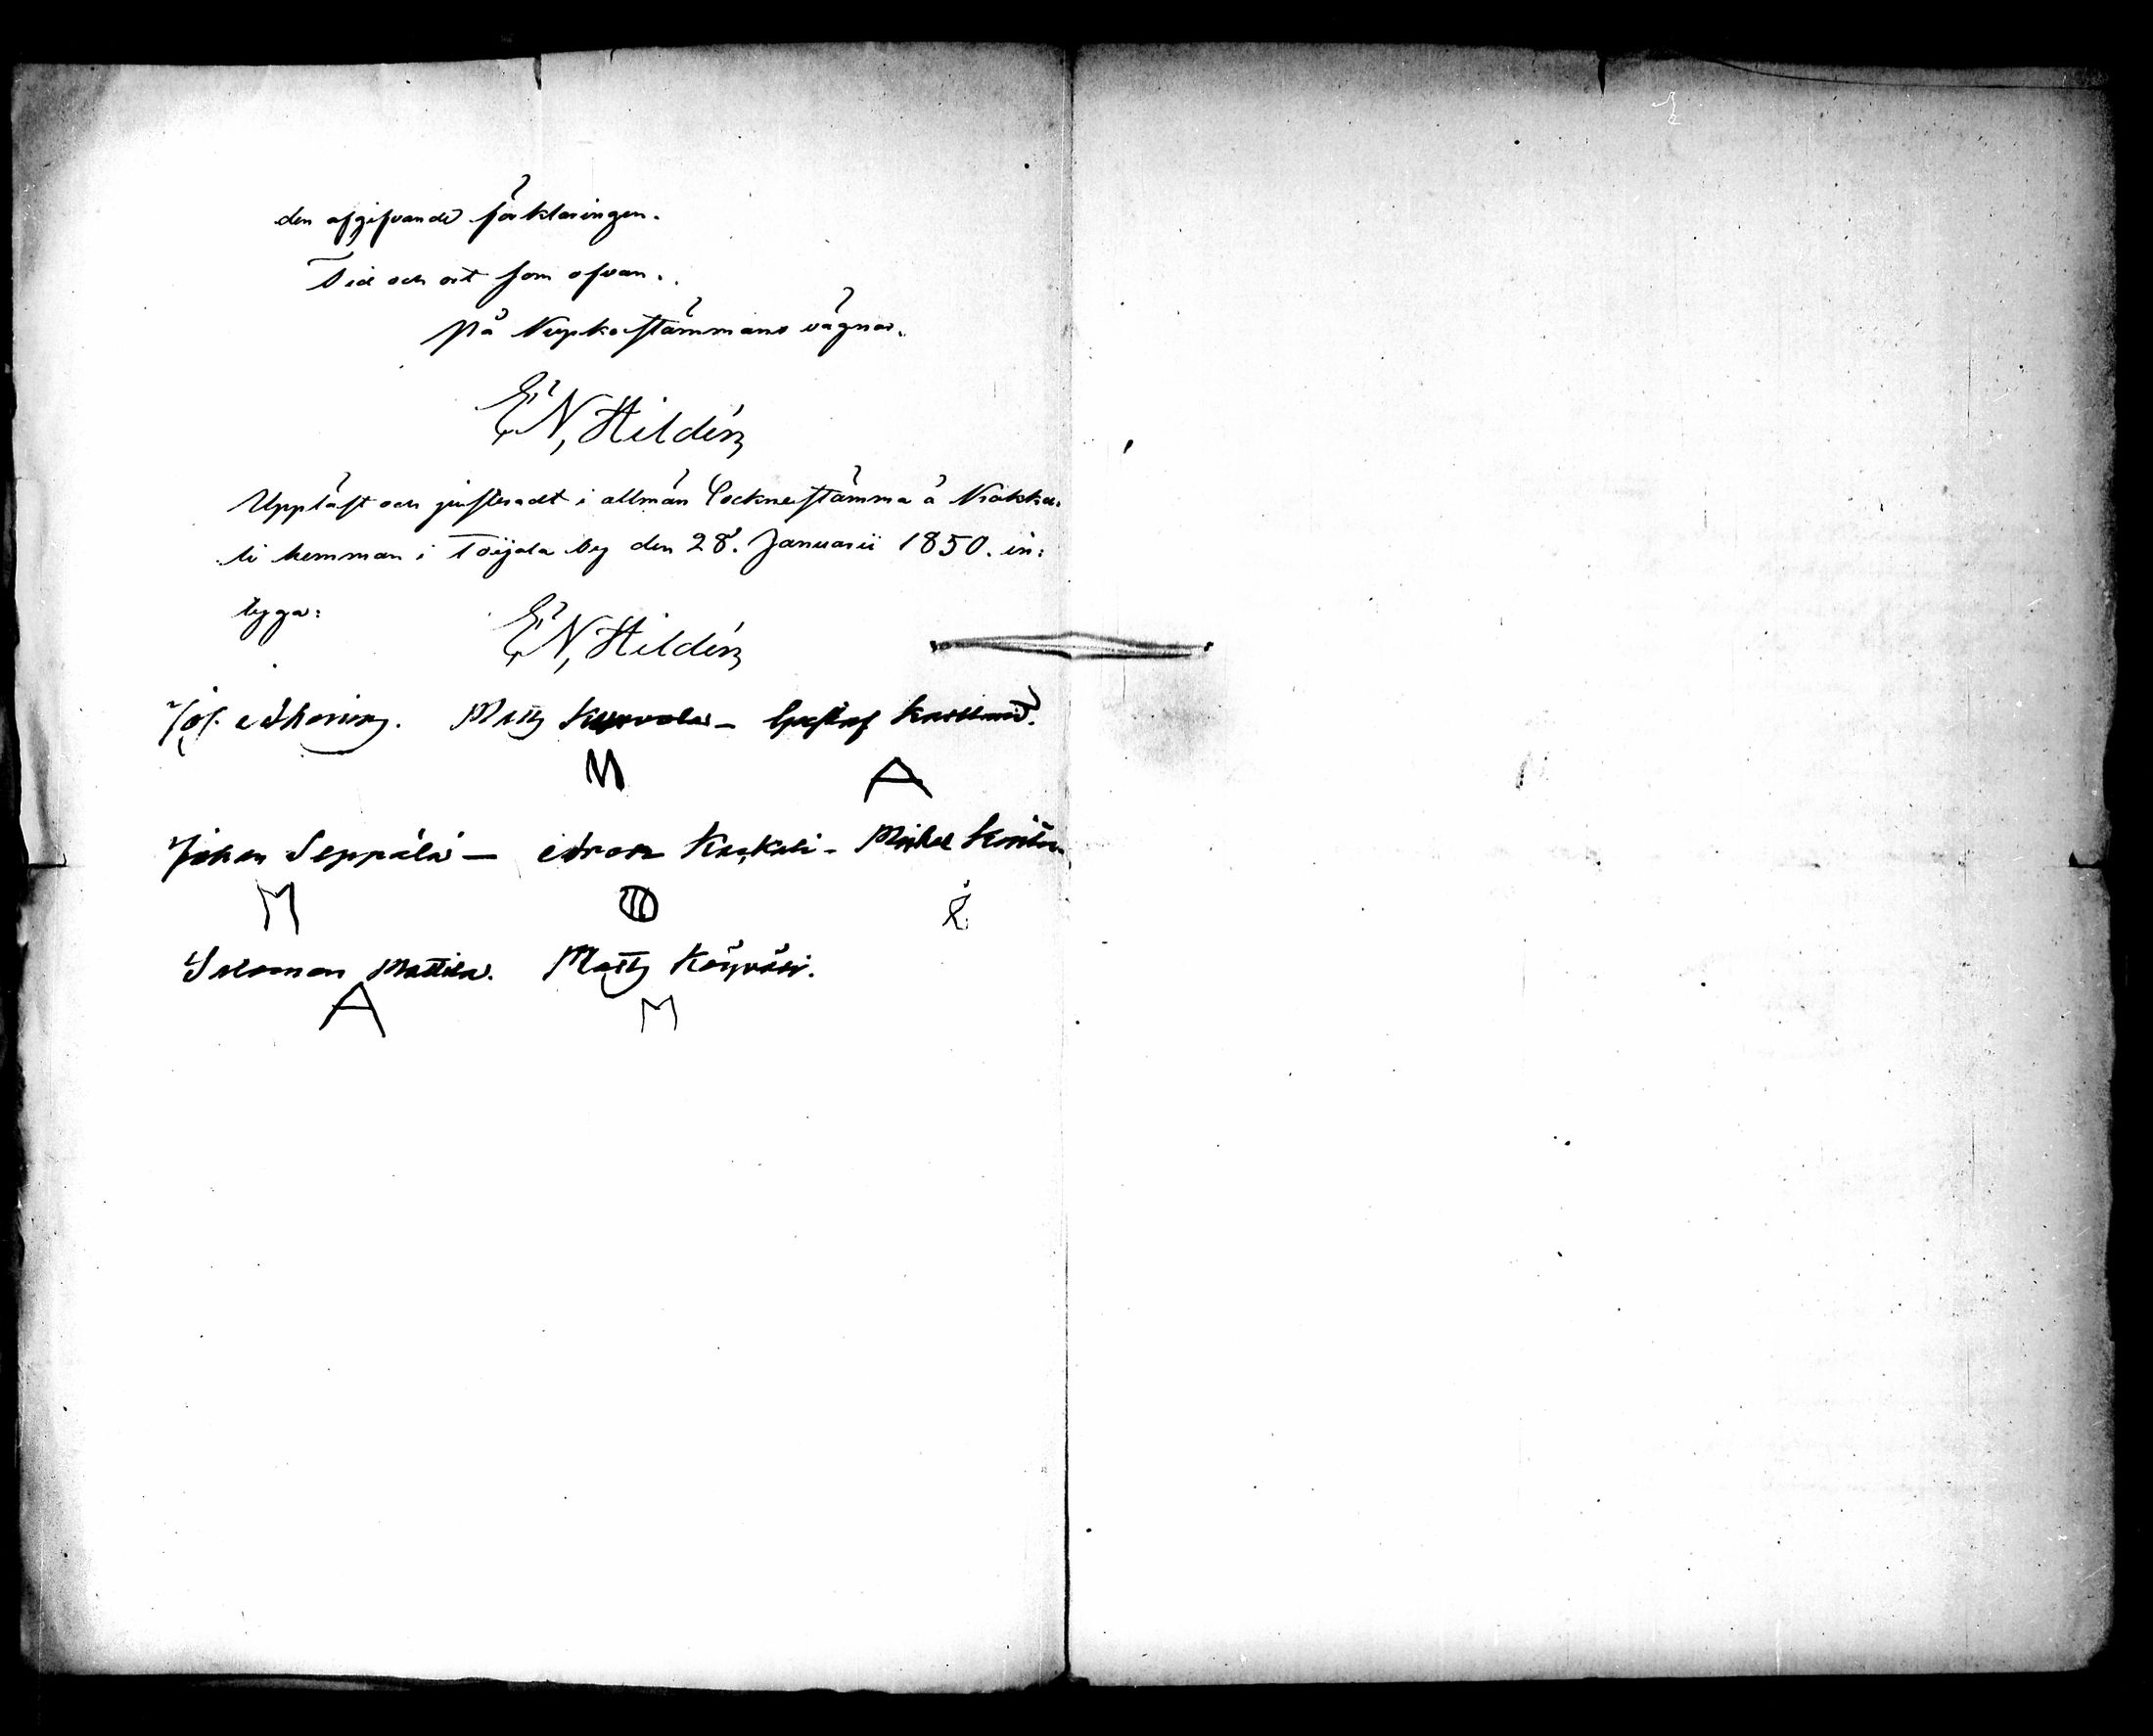 den afgifvande förklaringen.
Tid och ort som ofvan.
På Kyrkostämmans vägnar.
E N, Hildén
Uppläst och justeradt i allmän Socknestämma å Nokka-
li hemman i Toijala by den 28. Januarii 1850. in:
tyga:
E N, Hildén
Jos. Ahoniny. Matts Kurvola – Gustaf
M A
Johan Seppälä – Aron Kaskali – Michel
M
Salomon Mattila. Matts Köyväri.
A M